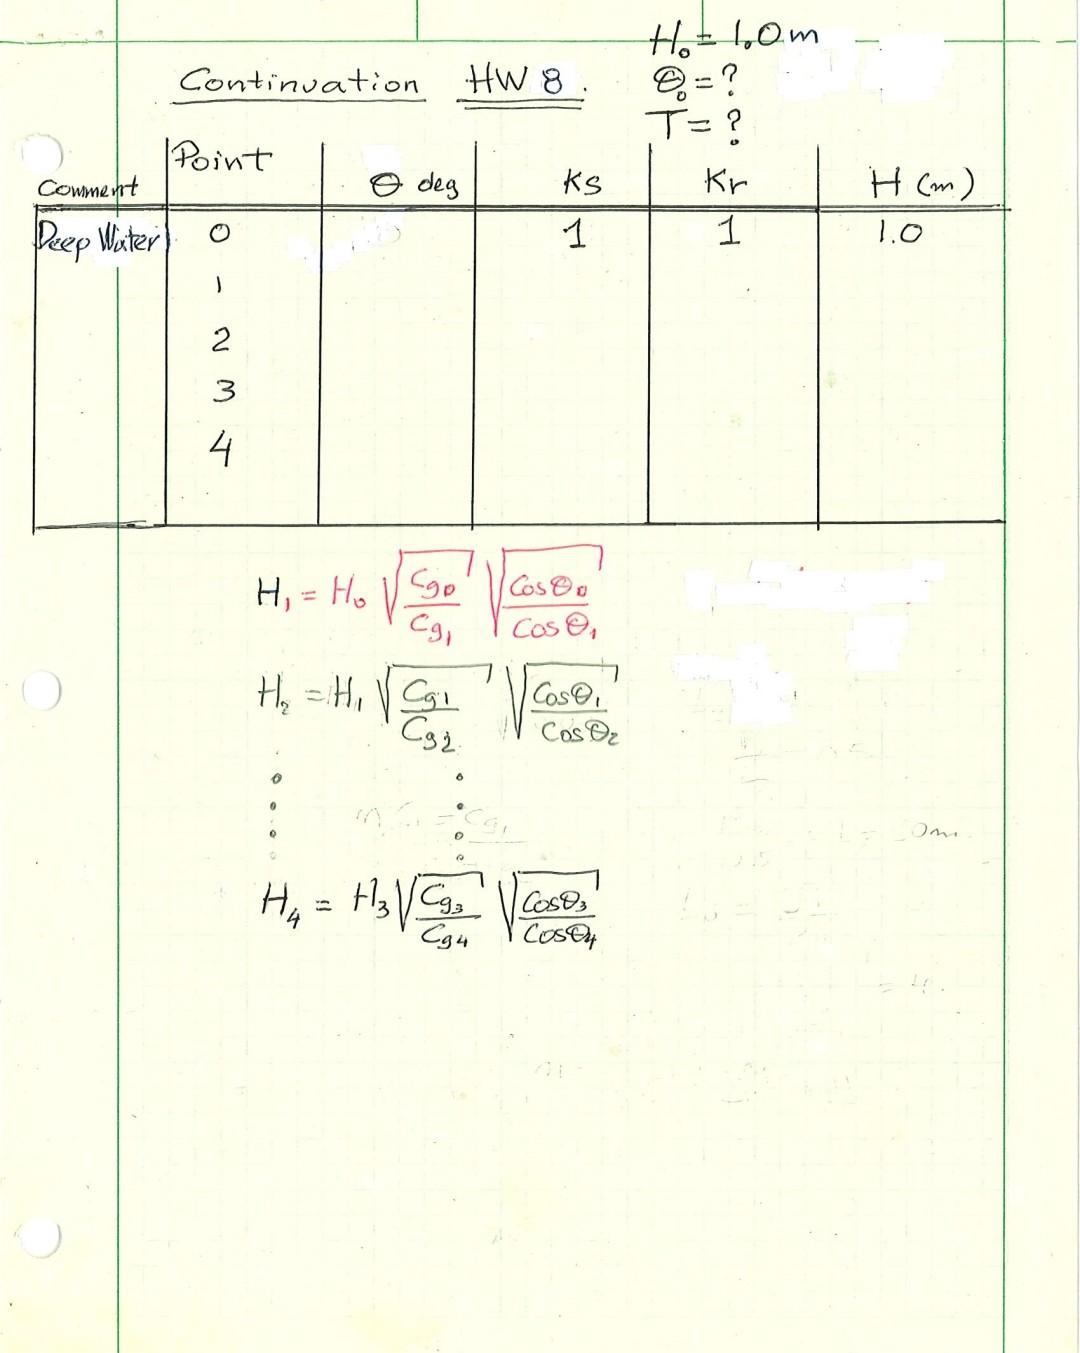 H₀ = 1.0m
Continuation HW 8.
θ₀ = ?
T = ?
Comment Point θ deg Ks Kr H (m)
Deep Water 0 1 1 1.0
1
2
3
4
H₁ = H₀ √(Cg₀/Cg₁) √(Cosθ₀/Cosθ₁)
H₂ = H₁ √(Cg1/Cg2) √(Cosθ₁/Cosθ₂)
H₄ = H₃ √(Cg₃/Cg₄) √(Cosθ₃/Cosθ₄)